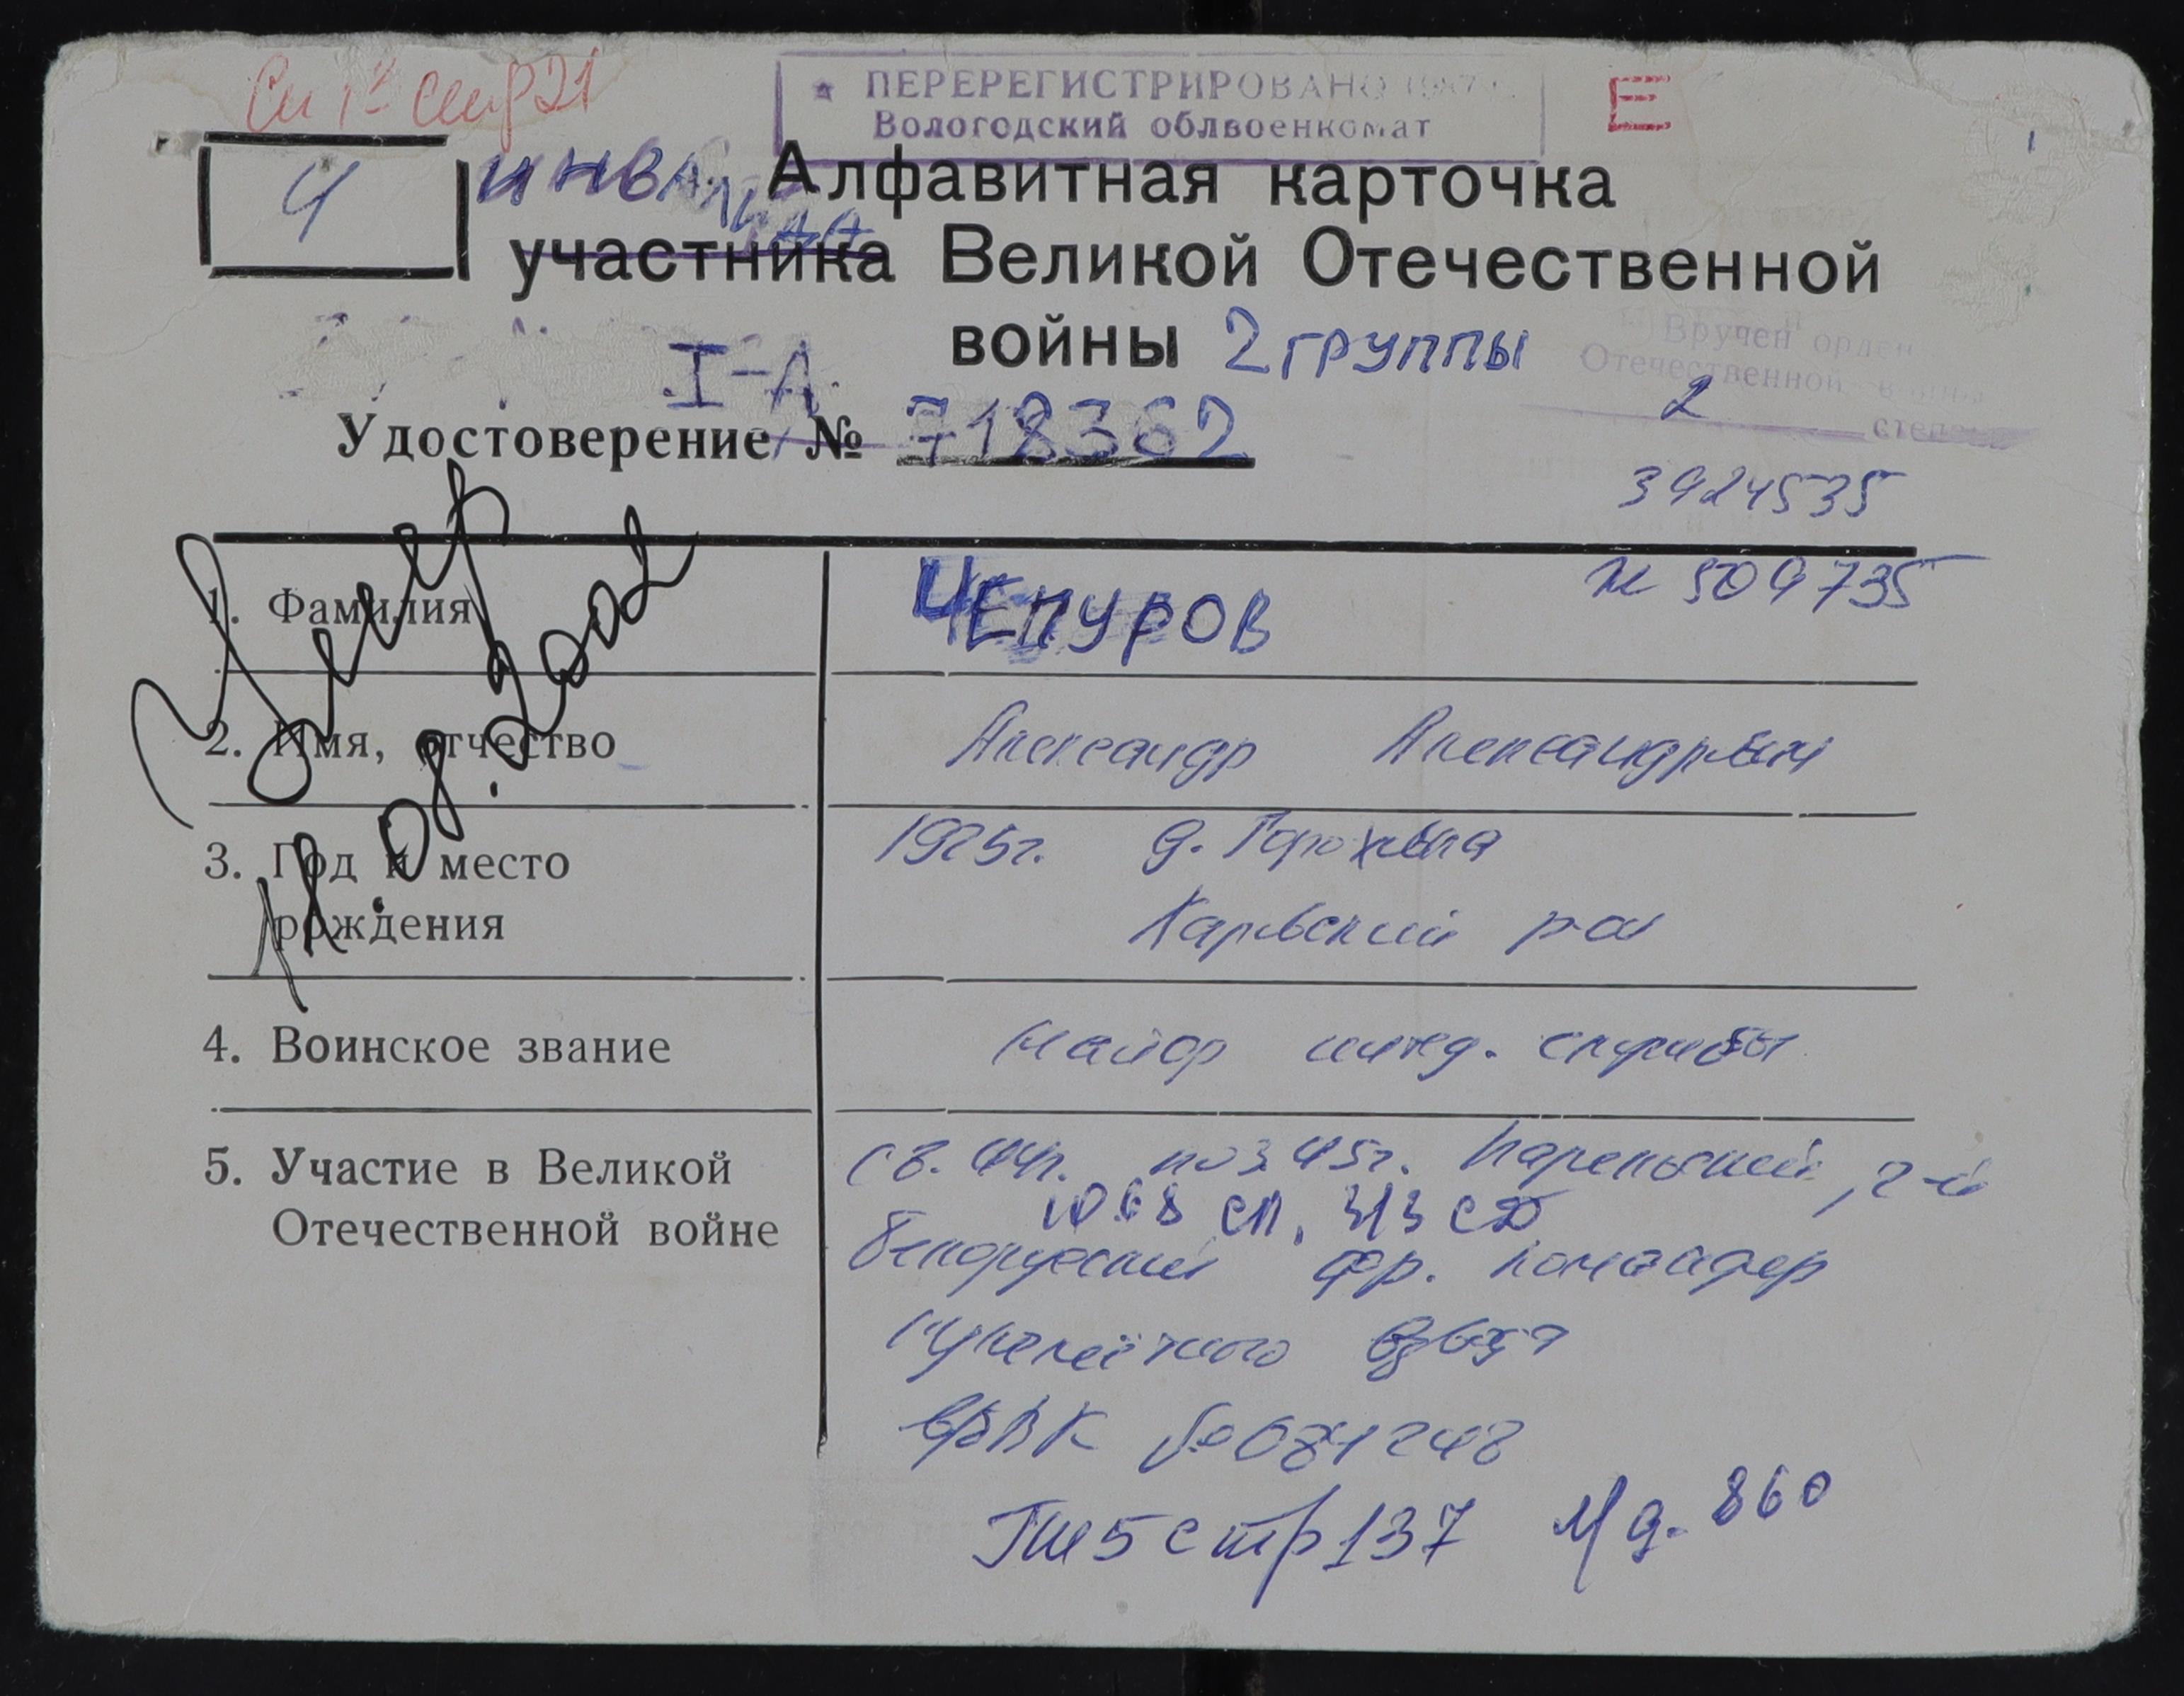 ПЕРЕРЕГИСТРИРОВАНО 1987 г.
Вологодский облвоенкомат
Е
Ч
инвалида
Алфавитная карточка
участника Великой Отечественной
войны 2 группы
I-А
Удостоверение № 718362
Вручен орден
Отечественной войны
2 степени
3924535
№ 509735
Умер
2002
1. Фамилия ЧЕПУРОВ
2. Имя, отчество Александр Александрович
3. Год и место рождения 1925г. д.
р-он
4. Воинское звание майор интенд. службы
5. Участие в Великой Отечественной войне с 8.44г. по 3.45г. Карельский, 2-й
1068 сп, 313 сд
Белорусский фр. командир
пулемётного взвода
№ 081248
стр 137
860